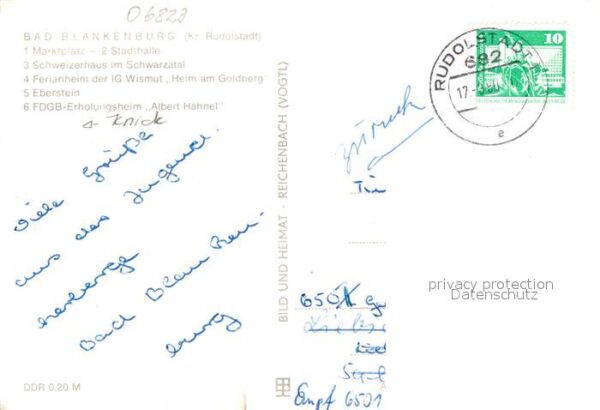 06823
BAD BLANKENBURG (Kr. Rudolstadt)
1 Marktplatz - 2 Stadthalle
3 Schweizerhaus im Schwarzatal
4 Ferienheim der IG Wismut „Heim am Goldberg“
5 Eberstein
6 FDGB-Erholungsheim „Albert Hähnel“
Knick
Viele Grüße
aus der Jugend-
herberge
Bad Blanken-
burg
DDR 0,20 M
BILD UND HEIMAT · REICHENBACH (VOGTL)
RUDOLSTADT
682
17
e
10
zurück
Empf 6501
privacy protection
Datenschutz